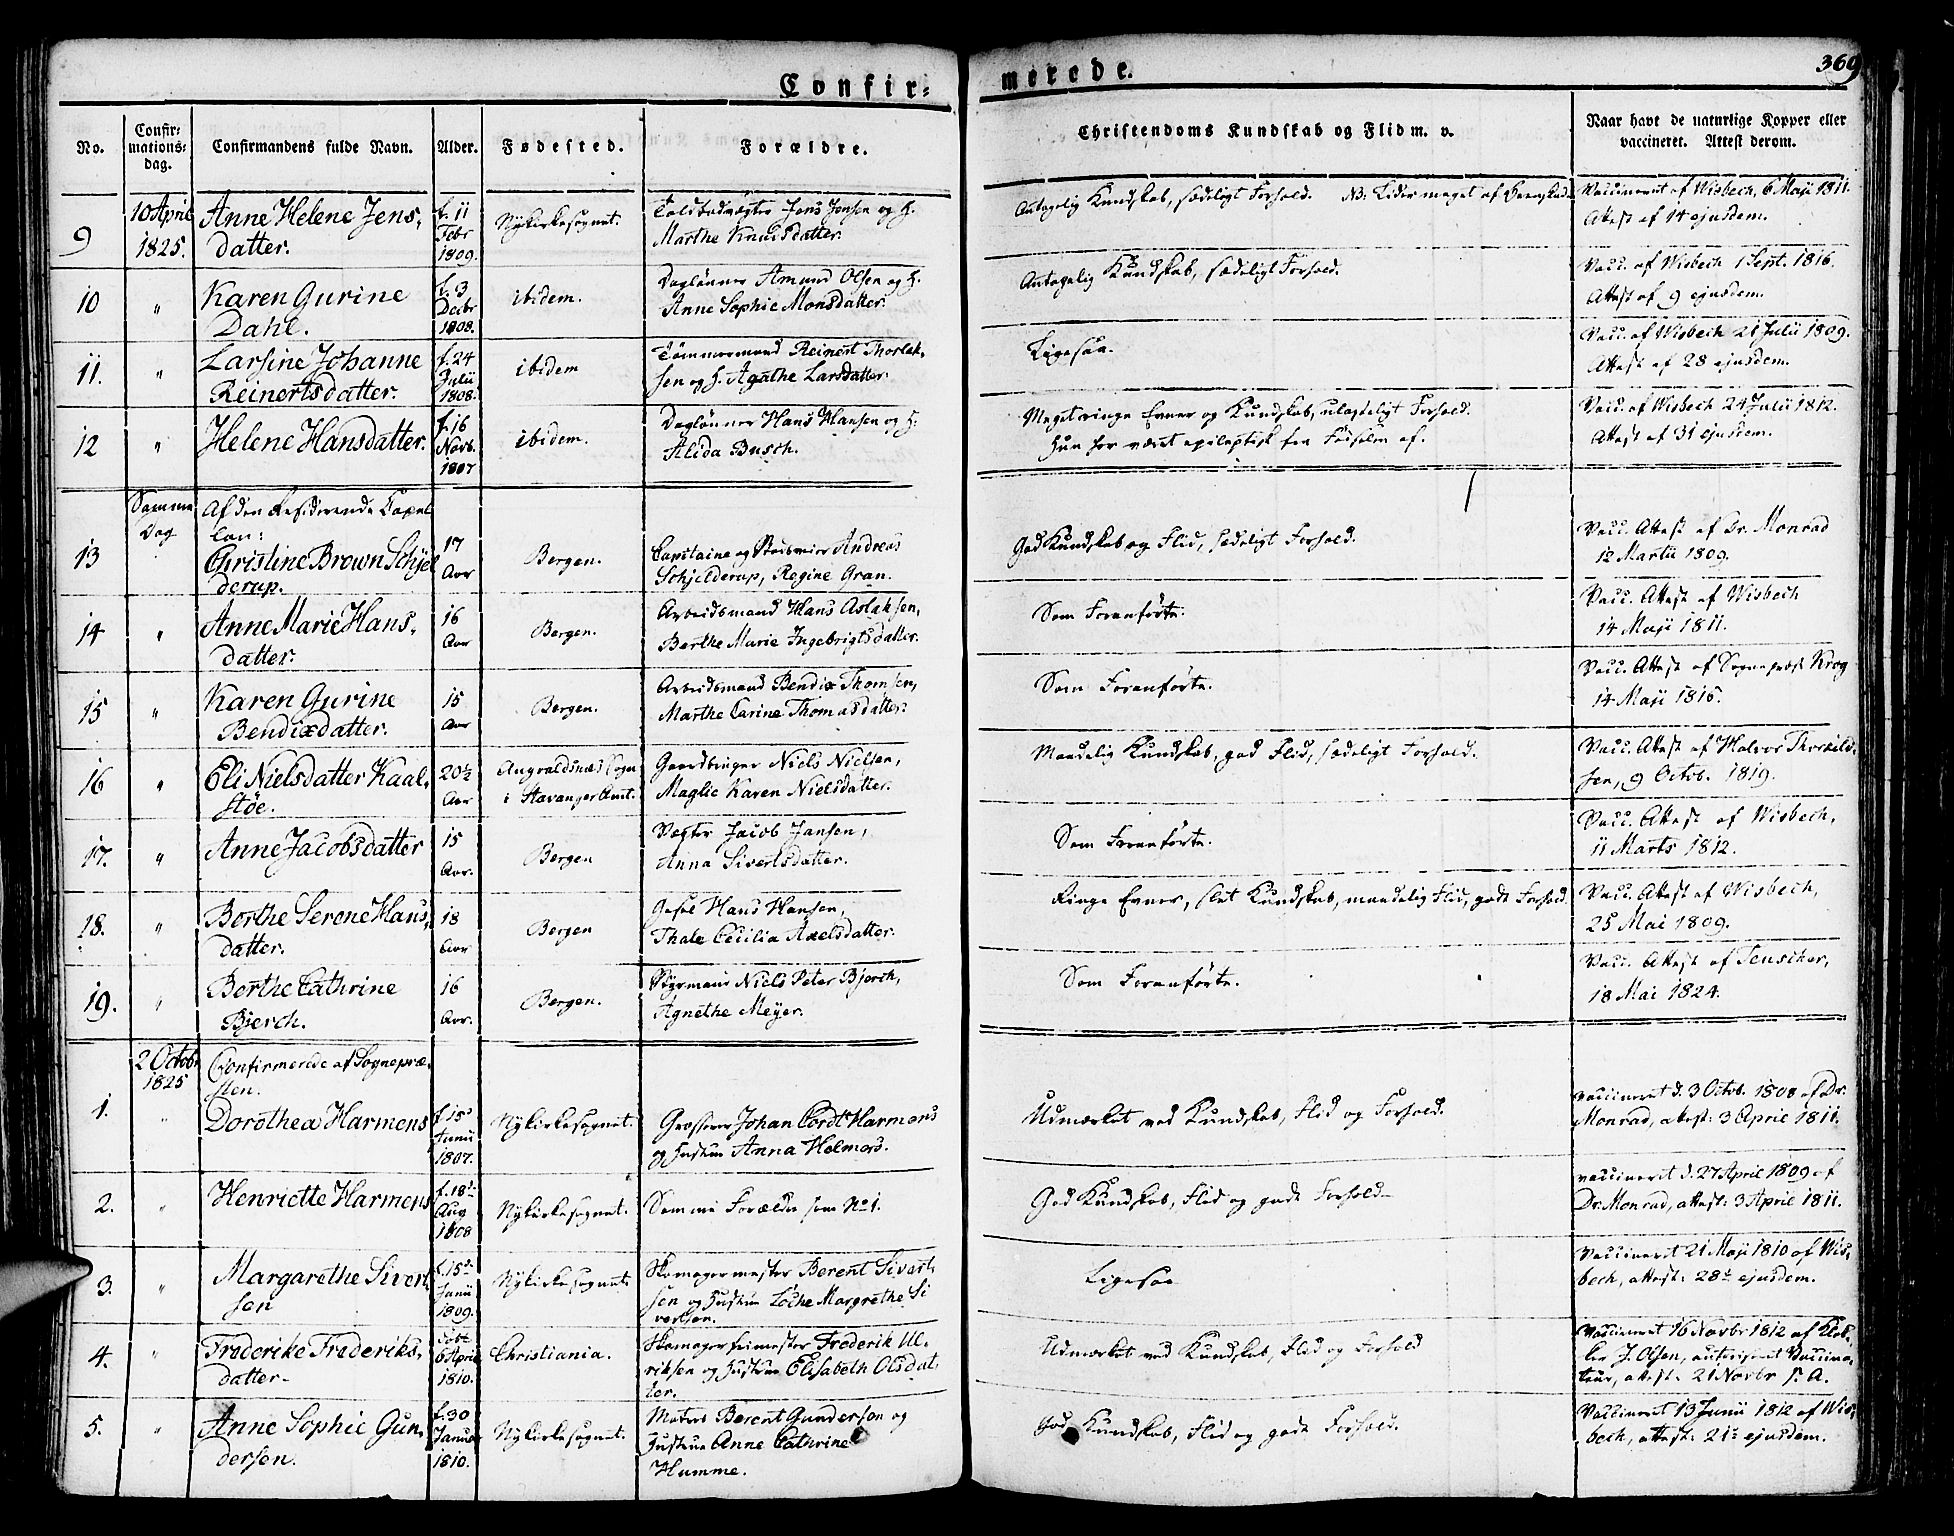 369
Confir=
merede.
No.
Confir=
mations=
dag.
Confirmandens fulde Navn.
Alder.
Fødested.
Forældre.
Christendoms Kundskab og Flid m. v.
Naar havt de naturlige Kopper eller
vaccineret. Attest derom.
9
10 April
1825.
Anne Helene Jens,
datter.
f. 11
Febr
1809.
Nykirkesognet.
Toldbodvægter Jens Jensen og H.
Marthe Knudsdatter.
Antagelig Kundskab, sædeligt Forhold. NB. Lider meget af
Vaccineret af Wisbech, 6 Maji 1811.
Attest af 14 ejusdem.
10
"
Karen Gurine
Dahl.
f. 3
Decbr
1808.
ibidem.
Daglønner Amund Olsen og H.
Anne Sophie Monsdatter.
Antagelig Kundskab, sædeligt Forhold.
Vacc. af Wisbech 1 Sept. 1816.
Attest af 9 ejusdem.
11.
"
Larsine Johanne
Reinertsdatter.
f. 24
Julii
1808.
ibidem
Tømmermand Reinert Thorlak,
sen og H. Agathe Larsdatter.
Ligesaa.
Vacc. af Wisbech 21 Julii 1809.
Attest af 28 ejusdem.
12
"
Helene Hansdatter.
f. 16
Novb.
1807
ibidem.
Daglønner Hans Hansen og H.
Alida Busch.
Meget ringe Evner og Kundskab, ulasteligt Forhold.
Hun har været epileptisk fra Fødselen af.
Vacc. af Wisbech 24 Julii 1812.
Attest af 31 ejusdem.
13
Samme
Dag
Af den Residerende Capel
lan:
Christine Brown Schjel
derup.
17
Aar
Bergen.
Capitaine og Andreas
Schjelderup, Regine Gran.
God Kundskab og Flid, sædeligt Forhold.
Vacc. Attest af Dr. Monrad
12 Martii 1809.
14
"
Anne Marie Hans,
datter.
16
Aar
Bergen.
Arbeidsmand Hans Aslaksen,
Berthe Marie Ingebrigtsdatter.
Som Foranførte.
Vacc. Attest af Wisbech
14 Maji 1811.
15
"
Karen Gurine
Bendixdatter.
15
Aar
Bergen.
Arbeidsmand Bendix Thomsen,
Marthe Carine Thomasdatter.
Som Foranførte.
Vacc. Attest af Sognepræst Krog
14 Maji 1815.
16
"
Eli Nielsdatter Kaal,
støe.
20½
Aar
Augvaldsnæs Sogn
i Stavanger Amt.
Gaardbruger Niels Nielsen,
Maglie Karen Nielsdatter.
Maadelig Kundskab, god Flid, sædeligt Forhold.
Vacc. Attest af Halvor Thorkild,
sen, 9 Octb. 1819.
17.
"
Anne Jacobsdatter
15
Aar.
Bergen
Vægter Jacob Jansen,
Anna Sivertsdatter.
Som Foranførte.
Vacc. Attest af Wisbech,
11 Marts 1812.
18.
"
Berthe Serene Hans,
datter.
18
Aar
Bergen
Gesel Hans Hansen,
Thale Cecilia Axelsdatter.
Ringe Evner, slet Kundskab, maadelig Flid, godt Forhold.
Vacc. Attest af Wisbech,
25 Mai 1809.
19.
"
Berthe Cathrine
Bjerch.
16
Aar.
Bergen.
Styrmand Niels Peter Bjerch,
Agnethe Meyer.
Som Foranførte.
Vacc. Attest af Tenscher,
18 Mai 1824.
2 Octobr
1825
Confirmerede af Sognepræ,
sten.
1.
"
Dorothea Harmens
f. 15
Junii
1807.
Nykirkesognet.
Grosserer Johan Cordt Harmens
og Hustru Anna Helmers.
Udmærket ved Kundskab, Flid og Forhold.
vaccineret d. 3 Octb. 1808 af Dr.
Monrad, attest: 3 April 1811.
2.
"
Henriette Harmens
f. 18de
Aug
1808
Nykirkesognet.
Samme Forældre som No 1.
God Kundskab, Flid og godt Forhold.
vaccineret d. 27 April 1809 af
Dr. Monrad, attest: 3 April 1811.
3.
"
Margarethe Sivert
sen
f. 15de
Junii
1809.
Nykirkesognet.
Skomagermester Berent Sivert,
sen og Hustru Loche Margrethe Si
vertsen.
Ligesaa
Vaccineret 21 Maji 1810 af Wis,
bech, attest: 28de ejusdem.
4.
"
Frederike Frederiks,
datter
født
6 April
1810.
Christiania.
Skomagermester Frederik Ul,
riksen og Hustrue Elisabeth Olsdat,
ter.
Udmærket ved Kundskab, Flid og Forhold
Vaccineret 16 Novbr 1812 af Klok,
ker J. Olsen, autoriseret Vaccina,
teur, attest. 21 Novbr s. A.
5.
"
Anne Sophie Gun,
dersen.
f. 30
Januar
1810.
Nykirkesognet.
Matros Berent Gundersen og
Hustrue Anne Cathrine
Humme.
God Kundskab, Flid og godt Forhold.
Vaccineret 13 Junii 1812 af Wis,
bech, attest: 21de ejusdem.